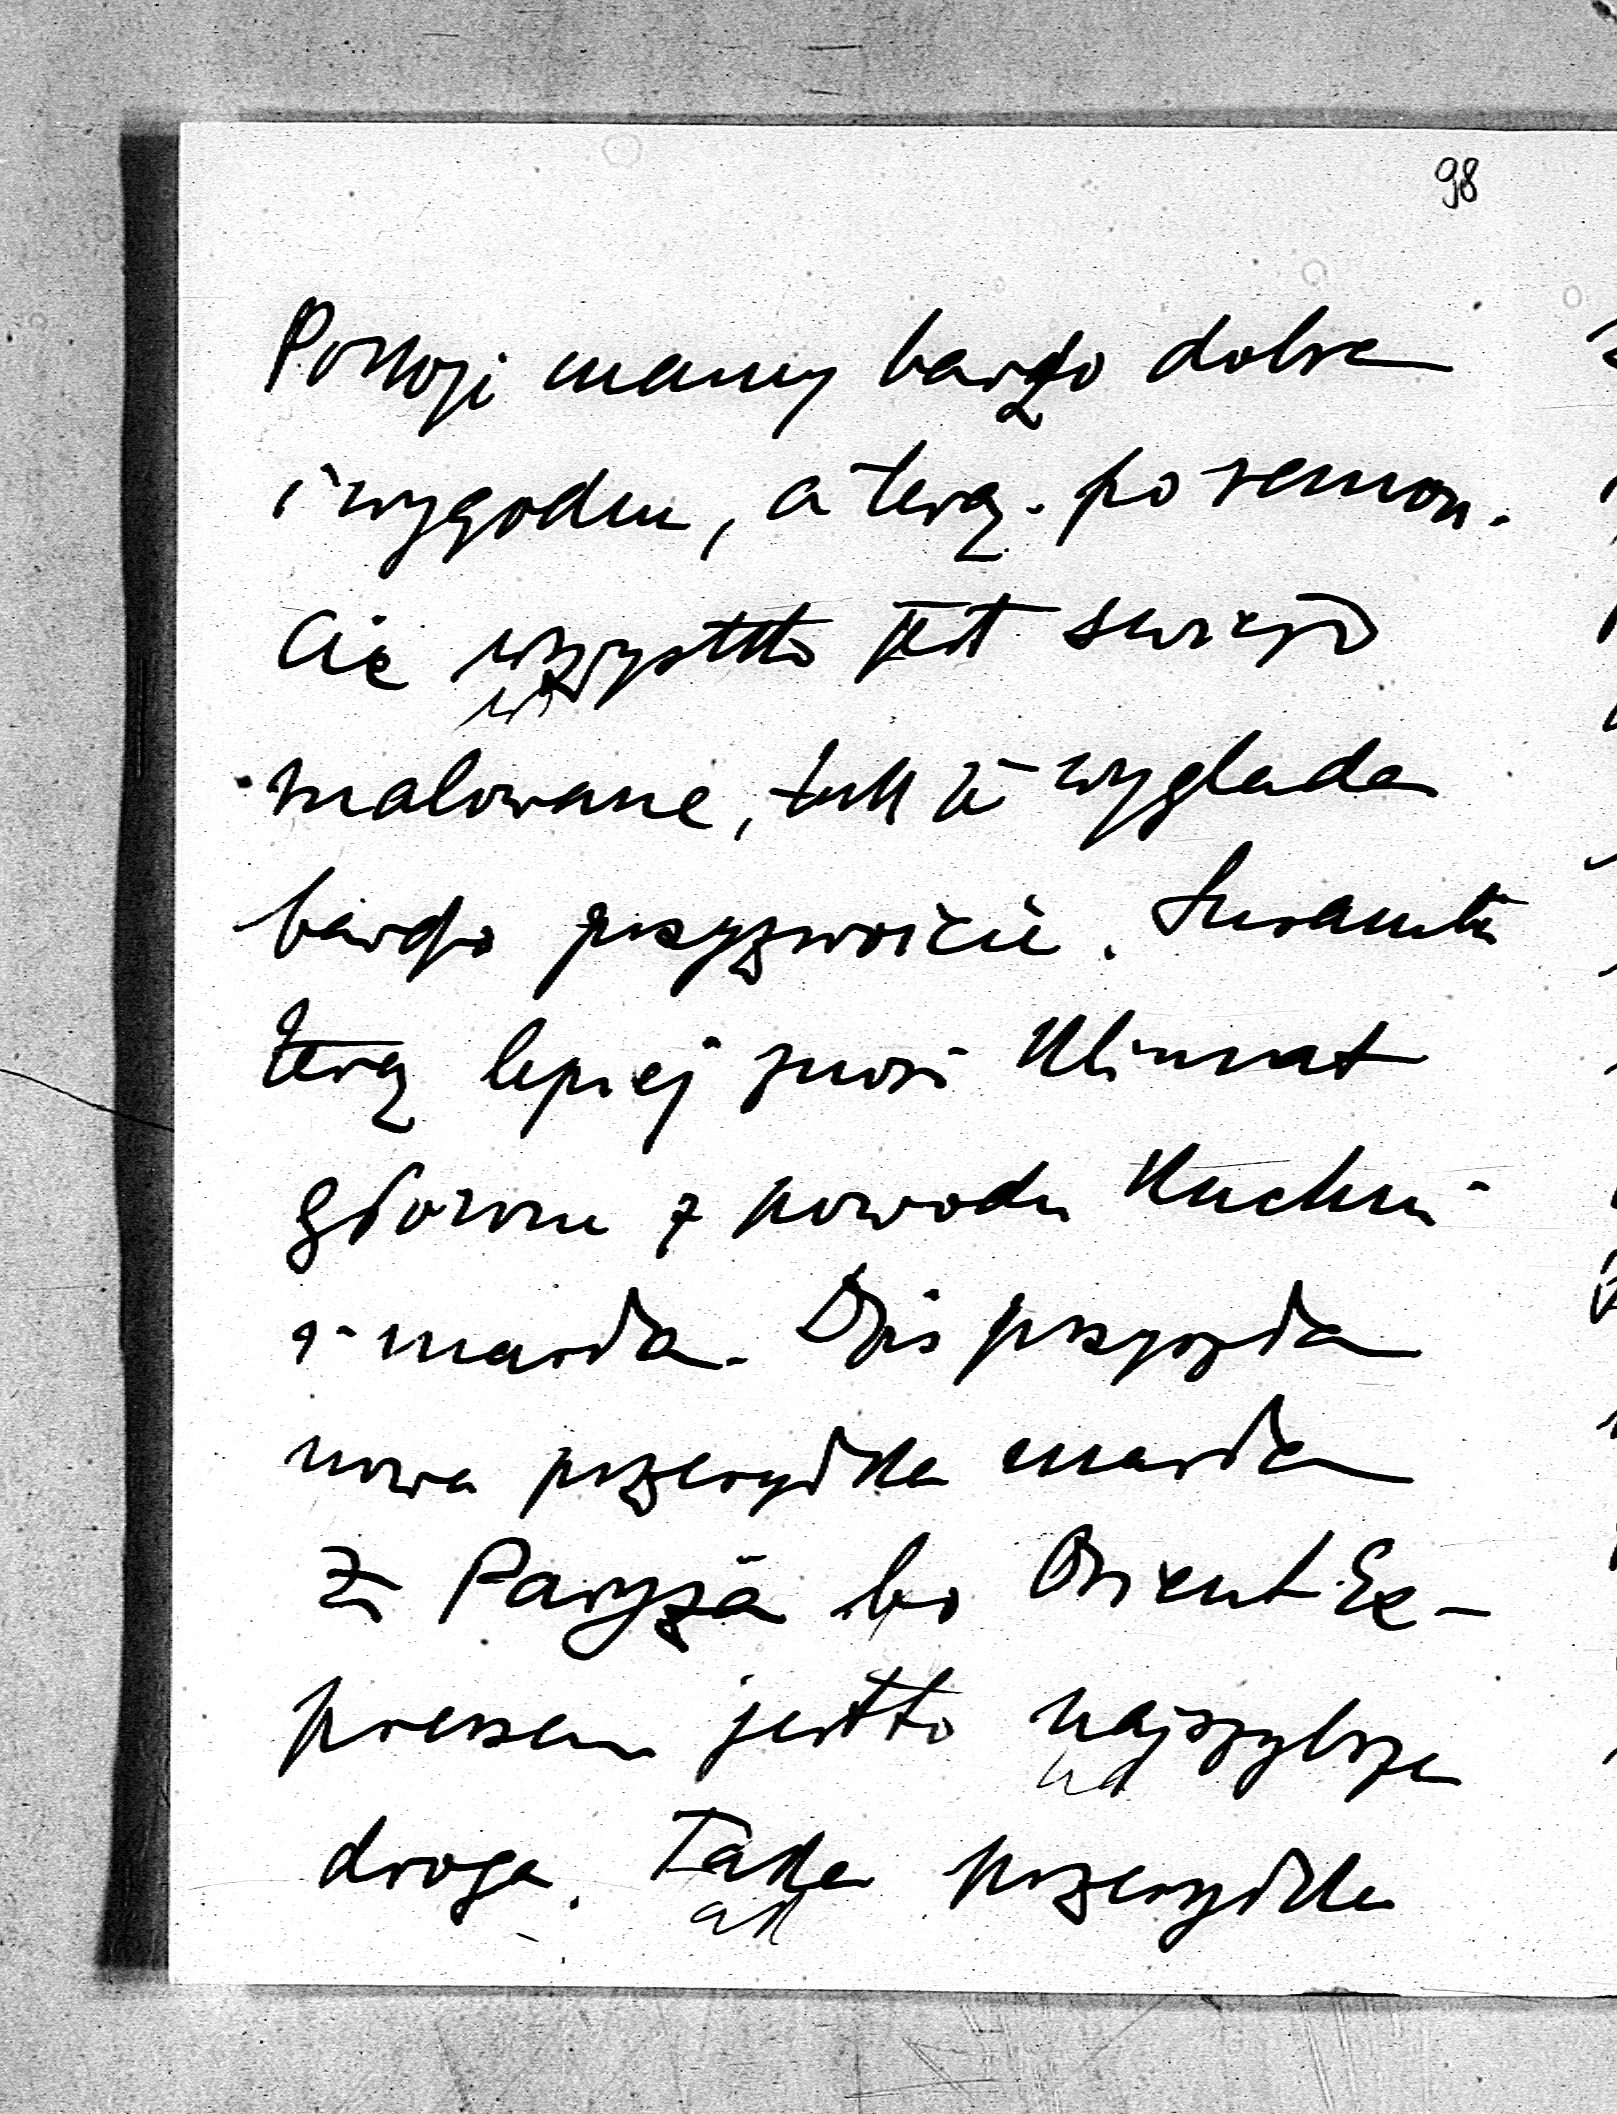 98
Pokoje mamy bardzo dobre
i wygodne, a teraz po remon-
cie wszystko jest świeżo
malowane, tak że wygląda
bardzo przyzwoicie.
teraz lepiej znosi klimat
głównie z powodu kuchni
i masła. Dziś przyszła
nowa przesyłka masła
z Paryża bo Orient Ex-
pressem jest to najszybsza
droga. Taka przesyłka